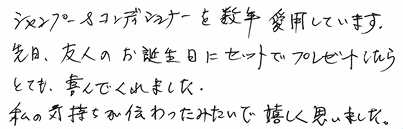 シャンプー&コンディショナーを数年愛用しています。
先日、友人のお誕生日にセットでプレゼントしたら
とても、喜んでくれました。
私の気持ちが伝わったみたいで嬉しく思いました。